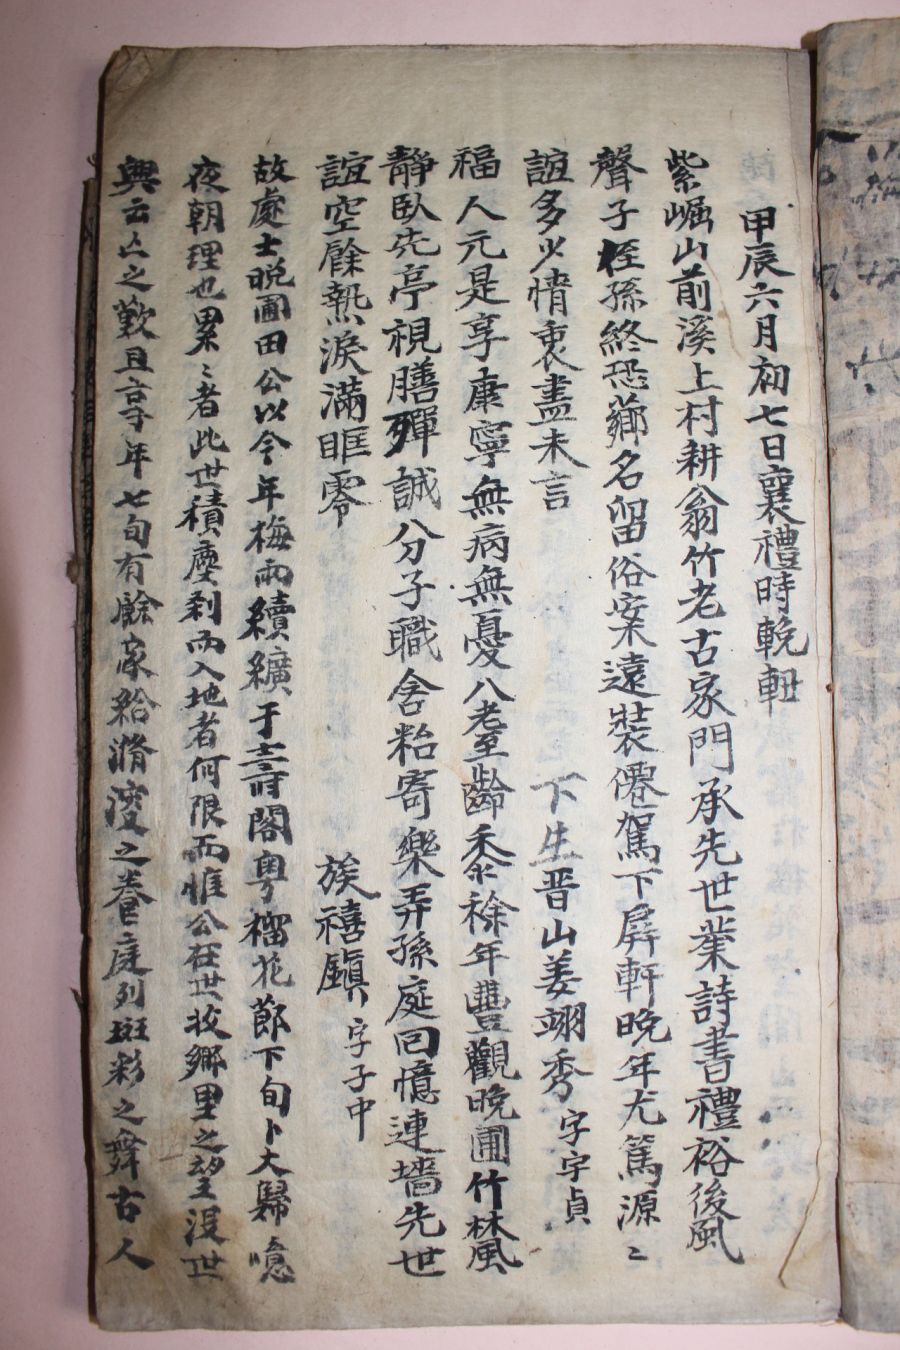 甲辰六月初七日襄禮時輓軸
紫崛山前溪上村耕翁竹老古家門承先世業詩書禮裕後風
聲子侄孫終恐薌名留俗案遠裝僊駕下屛軒晩年尤篤源〻
誼多少情衷盡未言　下生晋山姜翊秀字字貞
福人元是享康寧無病無憂八耋齡黍稌年豊觀晩圃竹林風
靜臥先亭視膳殫誠分子職含飴寄樂弄孫庭回憶連墻先世
誼空餘熱淚滿眶零　族禧鎭字子中
故處士晩圃田公以今年梅雨續纊于壽閣粤榴花節下旬卜大歸噫
夜朝理也累〻者此世積塵刹而入地者何限而惟公在世牧鄕里之望沒世
興云亡之歎且享年七旬有餘家給滫瀡之養庭列斑彩之舞古人